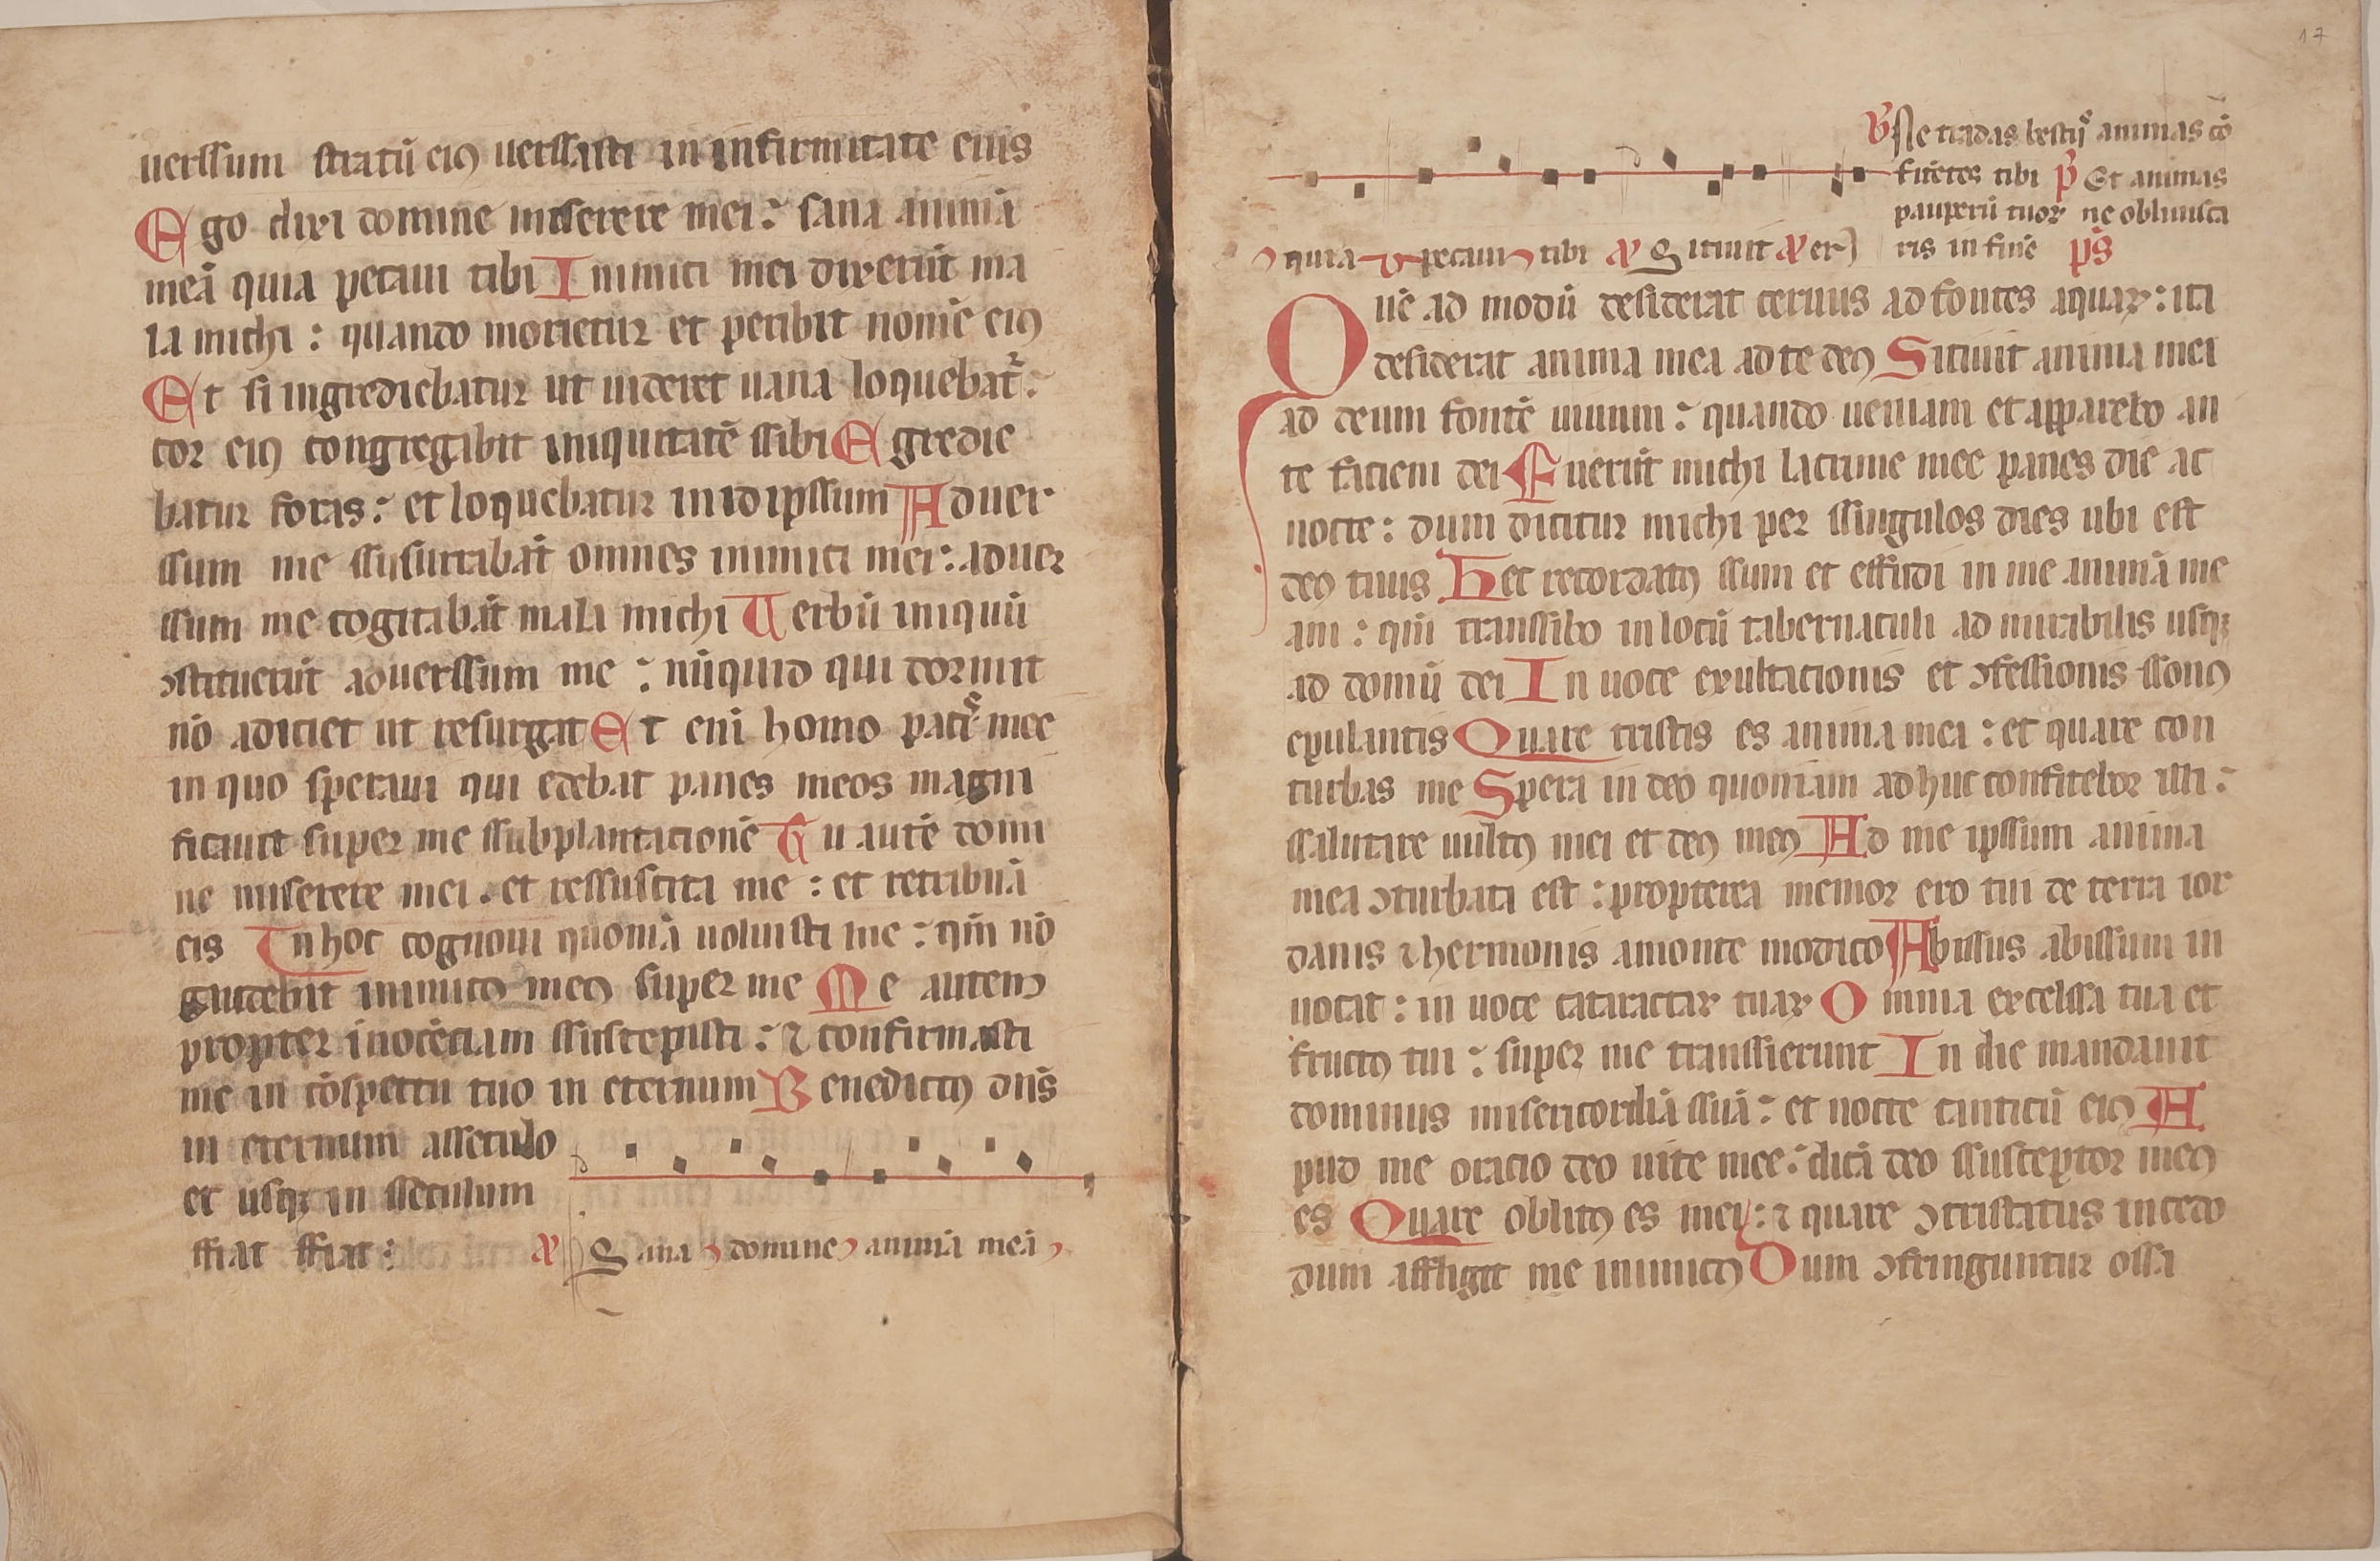 uerssum stratū eiꝰ uerssasti in infirmitate eius
Ego dixi domine miserere mei : sana animā
meā quia peccaui tibi Inimici mei dixerūt ma
la michi : quando morietur et peribit nomē eiꝰ
Et si ingrediebatur ut uideret uana loquebat᷑ :
cor eiꝰ congregabit iniquitatē ssibi Egredie
batur foras : et loquebatur in id ipssum Aduer
ssum me ssusurrabāt omnes inimici mei : aduer
ssum me cogitabāt mala michi Uerbū iniquū
ↄstituerūt aduerssum me : nūquid qui dormit
nō adiciet ut resurgat Et eni homo pacis mee
in quo speraui qui edebat panes meos magni
ficauit super me ssubplantacionē Tu autē domi
ne miserere mei . et ressuscita me : et retribuā
eis In hoc cognoui quoniā uoluisti me : qm̄ nō
gaudebit inimicꝰ meꝰ super me Me autem
propter inocēciam ssuscepisti : ⁊ confirmasti
me in cōspectu tuo in eternum Benedictꝰ dn̄s
in eternum asseculo
et usqꝫ in sseculum
ffiat ffiat :
Sana domine animā meā
quia peccaui tibi Sitiuit
Ne tradas bestijs animas cō
fitētes tibi Et animas
pauperū tuoꝝ ne obliuisca
ris in finē ps̄
Quē ad modū desiderat ceruus ad fontes aquaꝝ : ita
desiderat anima mea ad te deꝰ Sitiuit anima mea
ad deum fontē uiuum : quando ueniam et apparebo an
te faciem dei Fuerūt michi lacrime mee panes die ac
nocte : dum dicitur michi per ssingulos dies ubi est
deꝰ tuus Hec recordatꝰ ssum et effudi in me animā me
am : qm̄ transsibo in locū tabernaculi ad mirabilis usqꝫ
ad domū dei In uoce exultacionis et ↄfessionis ssonꝰ
epulantis Quare tristis es anima mea : et quare con
turbas me Spera in deo quoniam ad huc confitebor illi :
ssalutare uultꝰ mei et deꝰ meꝰ Ad me ipssum anima
mea ↄturbata est : propterea memor ero tui de terra ior
danis ⁊ hermonis amonte modico Abissus abissum in
uocat : in uoce cataractaꝝ tuaꝝ Omnia excelssa tua et
fluctꝰ tui : super me transsierunt In die mandauit
dominus misericordiā ssuā : et nocte canticū eiꝰ A
pud me oracio deo uite mee : dicā deo ssusceptor meꝰ
es Quare oblitꝰ es mei : ⁊ quare ↄtristatus incedo
dum affligit me inimicꝰ Dum ↄfringuntur ossa
17